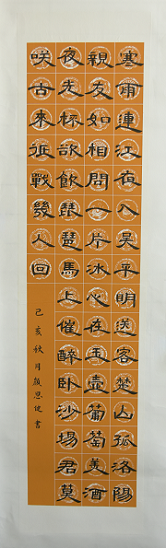 寒雨連江夜入吳平明送客楚山孤洛陽
親友如相問一片冰心在玉壺葡萄美酒
夜光杯欲飲琵琶馬上催醉臥沙場君莫
咲古來征戰幾人回
己亥秋月顏思書